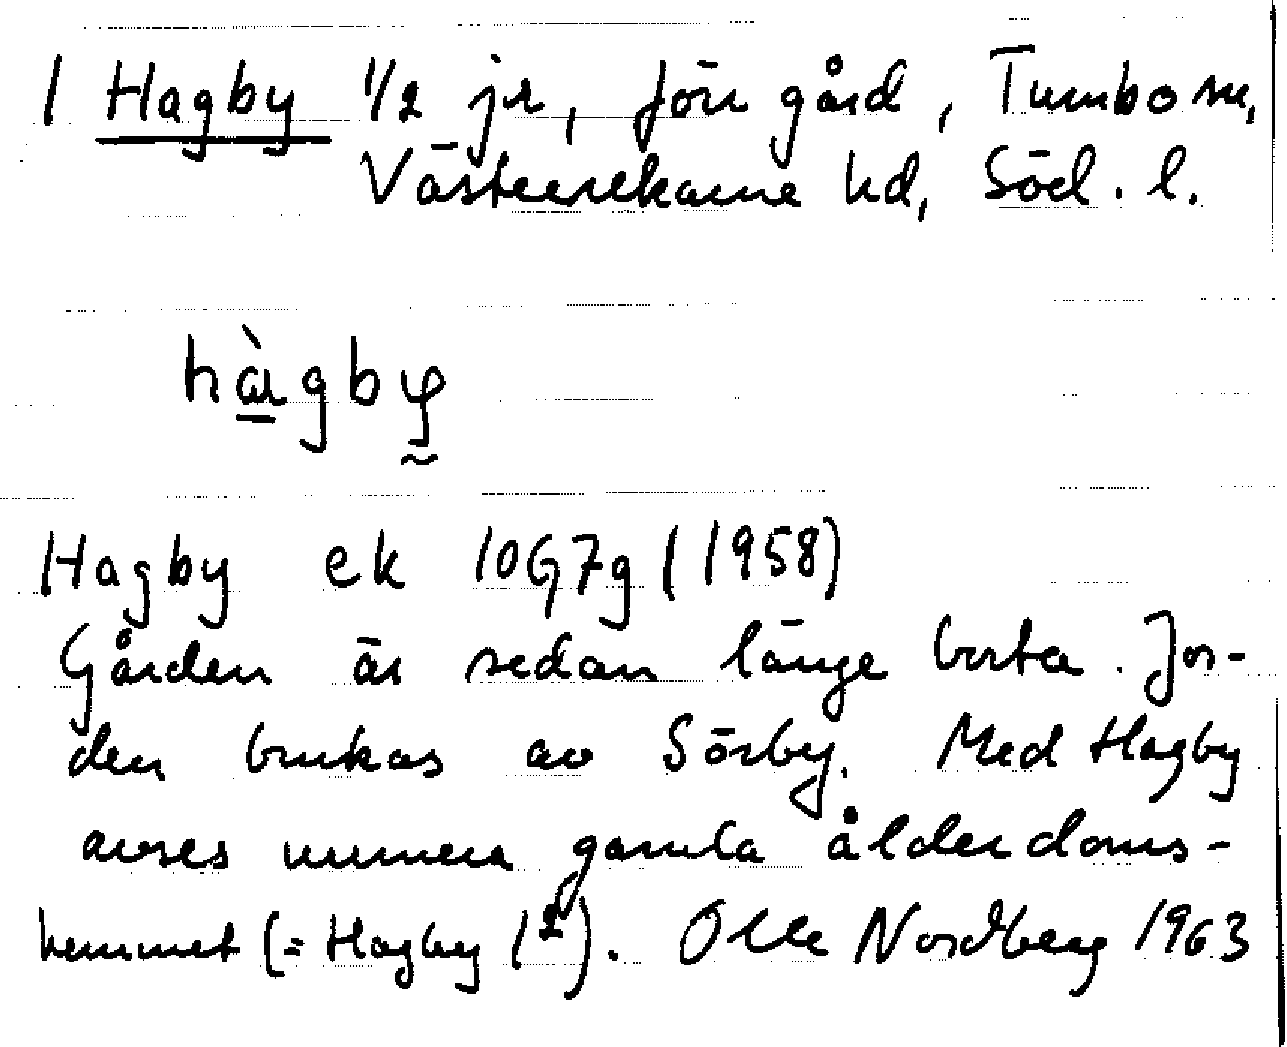 1 Hagby 1/2 jr, förr gård, Tumbo sn,
Västerrekarne hd, Söd. l.
hàgby
Hagby ek 10G7g (1958)
Gården är sedan länge borta. Jor-
den brukas av Sörby. Med Hagby
avses numera gamla ålderdoms-
hemmet (= Hagby 1²). Olle Nordberg 1963